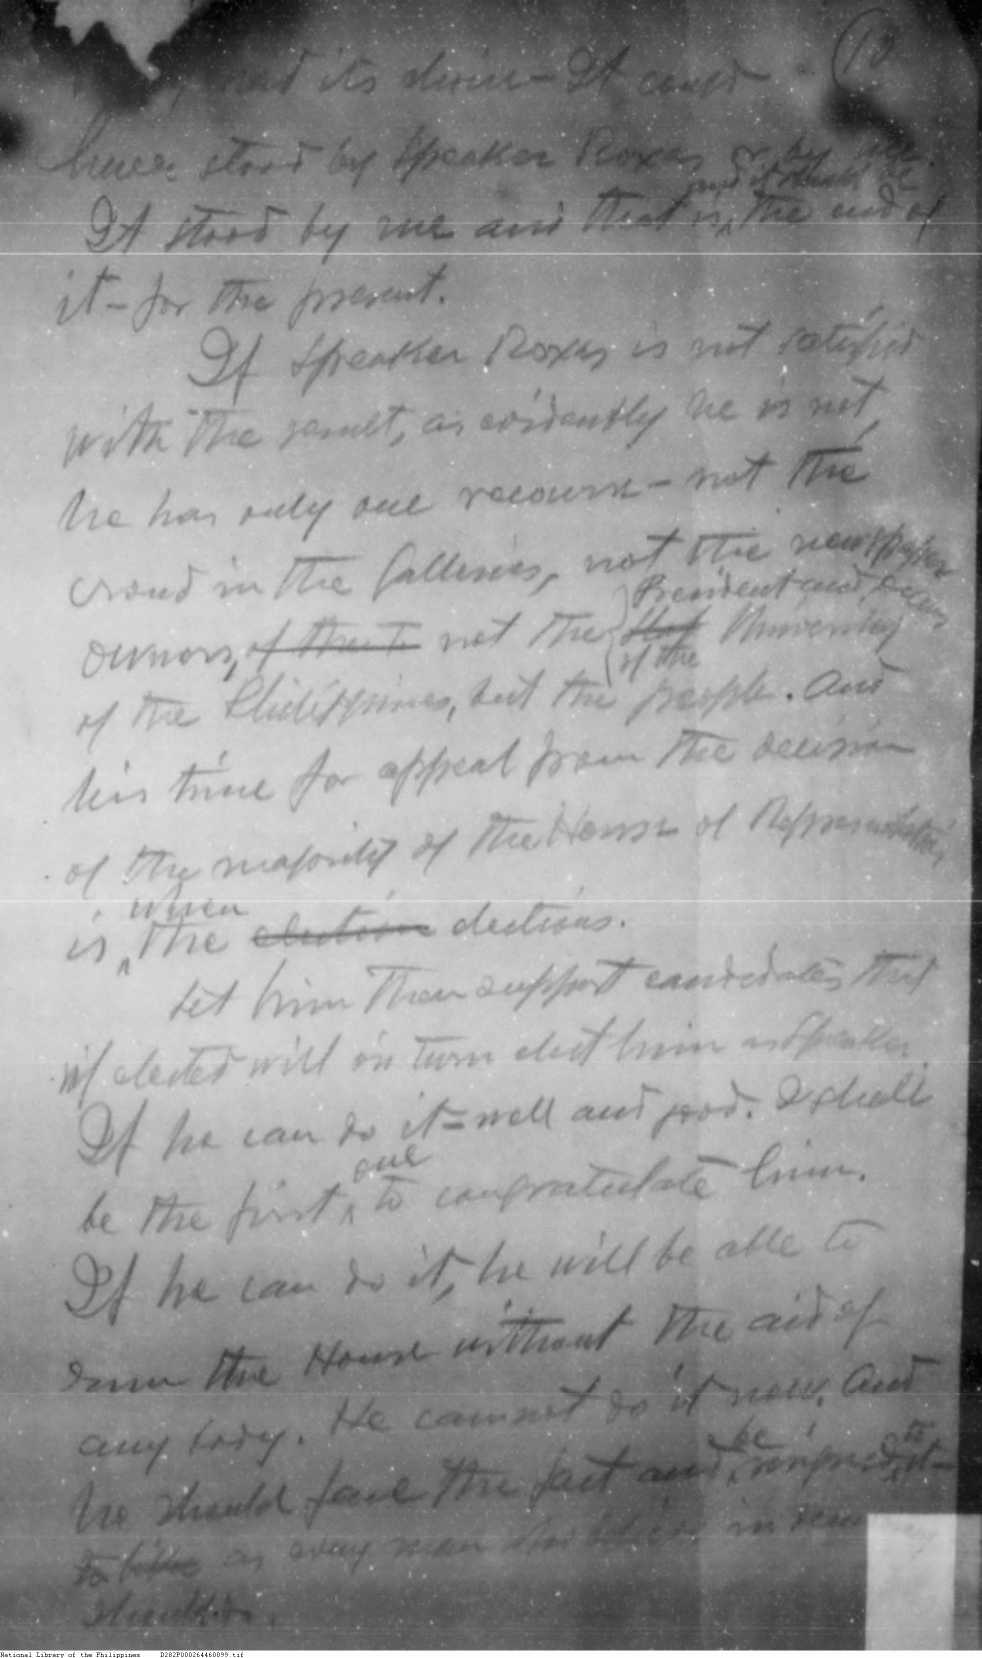 10
its It could
have stood by Speaker Roxas or by me.
and it should be
It stood by me and that is, the end of
it – for the present.
If Speaker Roxas is not satisfied
with the result, as evidently he is not,
he has only one recourse – not the
crowd in the Galleries, not the newspaper
President and Deans
owners, of the not the Staf University
of the
of the Philippines, but the people. And
his time for appeal from the decision
of the majority of the House of Representatives
when
is the election elections.
Let him then support candidates that
if elected will in turn elect him as Speaker.
If he can do it – well and good. I shall
one
be the first to congratulate him.
If he can do it, he will be able to
the House without the aid of
any body. He cannot do it now. And
be to
he should face the fact and resigned it –
as every man in